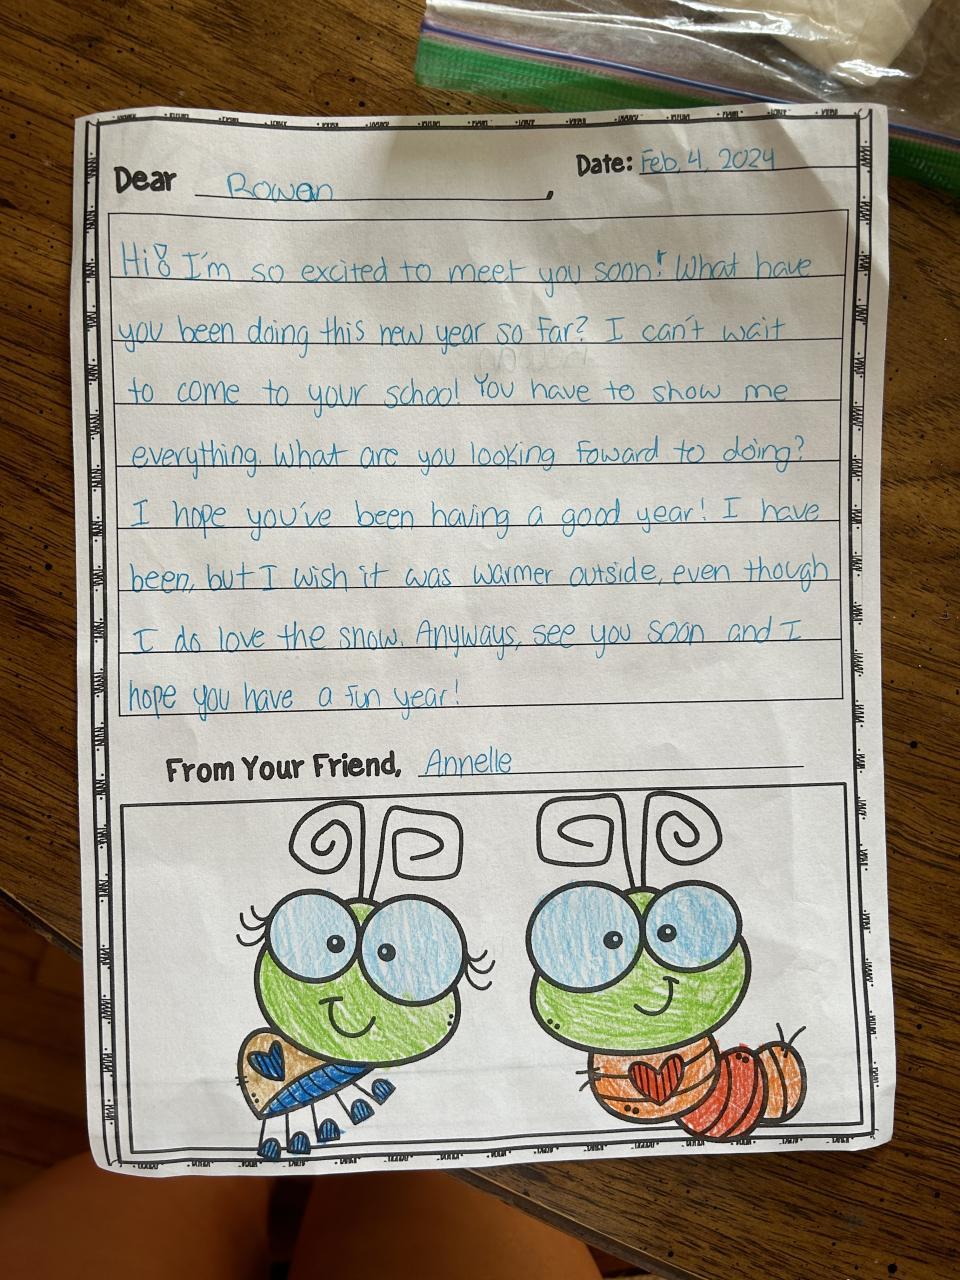 Date: Feb. 4, 2024
Dear Rowan,
Hi! I'm so excited to meet you soon! What have
you been doing this new year so far? I can't wait
to come to your school! You have to show me
everything. What are you looking foward to doing?
I hope you've been having a good year! I have
been, but I wish it was warmer outside, even though
I do love the snow. Anyways, see you soon and I
hope you have a fun year!
From Your Friend, Annelle